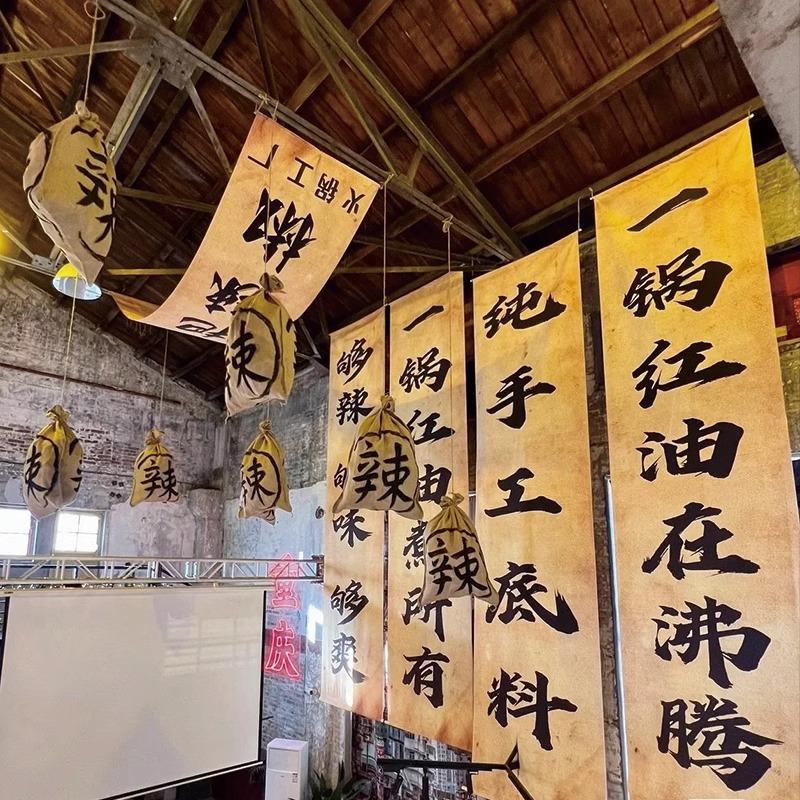 火锅工厂
够辣 够味 够爽
一锅红油煮所有
纯手工底料
一锅红油在沸腾
辣
辣
辣
辣
辣
辣
辣
重庆